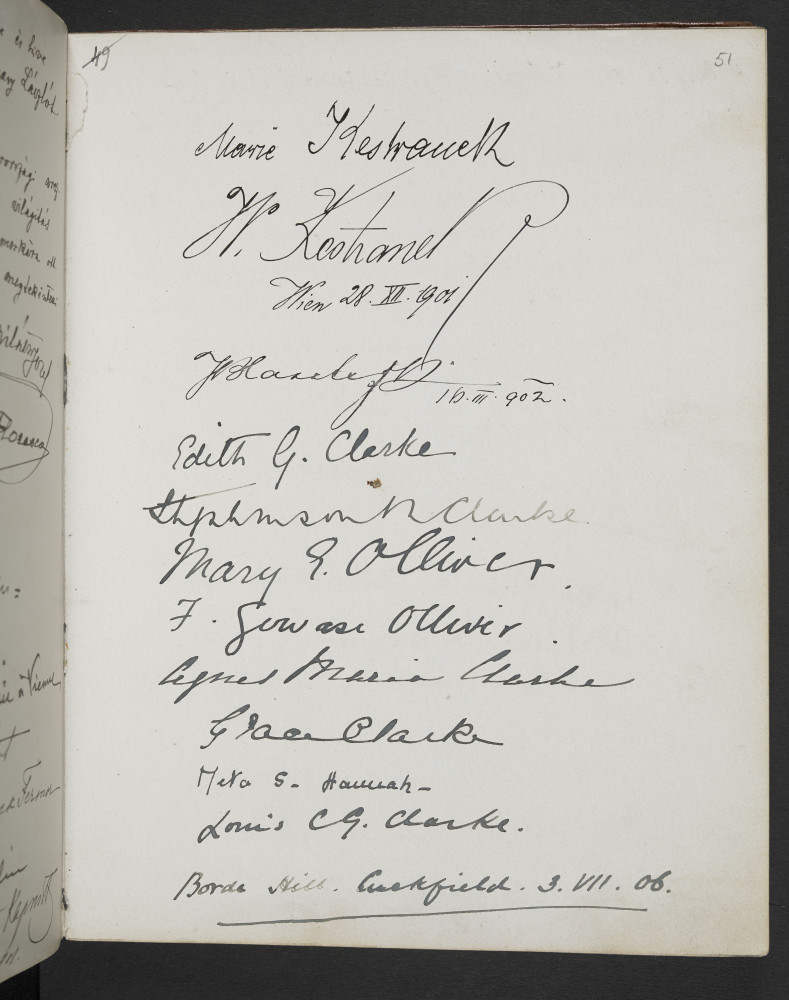 49
51
Marie Kestranek
W. Kestranek
Wien 28. XII. 901
16. III. 902.
Edith G. Clarke
Stephenson R Clarke.
Mary E. Olliver.
F. Gervase Olliver.
Agnes Maria Clarke
Grace Clarke
Meta S. Hannah-
Louis C G. Clarke.
Borde Hill. Cuckfield. 3. VII. 06.